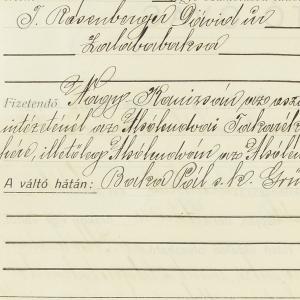 T. Rosenberger Dávid úr
Zalabaksa
Fizetendő Nagy Kanizsán az
intézeténél az Alsólendvai Takarék
illetőleg Alsólendván az Alsólen
A váltó hátán: Baka Pál s. k. Grü